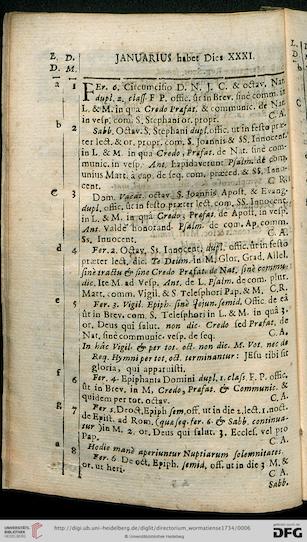 L. D. JANUARIUS habet Dies XXXI.
D. M.
a 1 Fer. 6. Circumcisio D. N. J. C. & octav. Nat.
dupl. 2. class. F P. offic. ut in Brev. sinè comm. in
L. & M. in qua Credo Præfat. & communic. de Nat.
in vesp. com. S. Stephani or. propr. C. A.
b 2 Sabb. Octav. S. Stephani dupl. offic. ut in festo præ-
ter lect. & or. propr. com. S. Joannis & SS. Innocent.
in L. & M. in qua Credo, Præfat. de Nat. sinè com-
munic. in vesp. Ant. Lapidaverunt Psalm. de com-
unius Mart. à cap. de seq. com. præced. & SS. Inno-
cent. C. R.
c 3 Dom. Vacat. octav. S. Joannis Apost. & Evang.
dupl. offic. ut in festo præter lect. com. SS. Innocent.
in L. & M. in qua Credo, Præfat. de Apost. in vesp.
Ant. Valdè honorand. Psalm. de com. Ap. comm.
SS. Innocent. C. A.
d 4 Fer. 2. Octav. SS. Innocent. dupl. offic. ut in festo
præter lect. dic. Te Deum. in M. Glor. Grad. Allel.
sinè tractu & sinè Credo Præfat. de Nat. sinè commu-
dic. Ite M. ad Vesp. Ant. de L. Psalm. de com. plur.
Matt. comm. Vigil. & S. Telesphori Pap. & M. C. R.
e 5 Fer. 3. Vigil. Epiph. sinè Jejun. semid. Offic. de eâ
ut in Brev. com. S. Telesphori in L. & M. in quâ 3.
or. Deus qui salut. non dic. Credo sed Præfat. de
Nat. sinè communic. vesp. de seq. C. A.
In hâc Vigil. & per tot. oct. non dic. M. Vot. nec de
Req. Hymni per tot. oct. terminantur: JEsu tibi sit
gloria, qui apparuisti.
f 6 Fer. 4. Epiphania Domini dupl. 1. class. F. P. offic.
ut in Brev. in M. Credo, Præfat. & Communic. &
quidem per tot. octav. C. A.
g 7 Fer. 5. De oct. Epiph. sem. off. ut in die 2. lect. 1. noct.
de Epist. ad Rom. (quæ seq. fer. 6. & Sabb. continua-
tur) in M. 2. or. Deus qui salut. 3. Eccles. vel pro
Pap. C. A.
Hodie manè aperiuntur Nuptiarum solemnitates.
a 8 Fer. 6. De oct. Epiph. semid. off. ut in die 3 M. &
or. ut heri. C. A.
Sabb.
UNIVERSITÄTS-
BIBLIOTHEK
HEIDELBERG
http://digi.ub.uni-heidelberg.de/diglit/directorium_wormatiense1734/0006
© Universitätsbibliothek Heidelberg
gefördert durch die
DFG